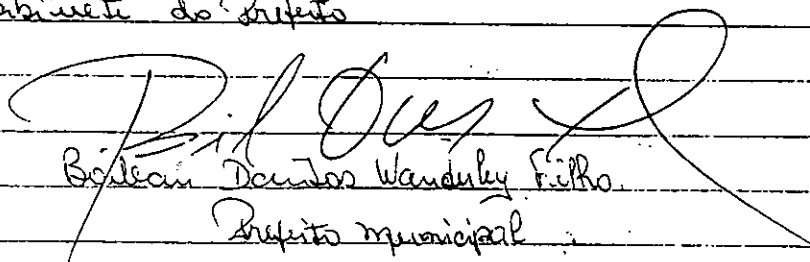 Gabinete do Prefeito
Boileau Dantas Wanderley Filho.
Prefeito Municipal